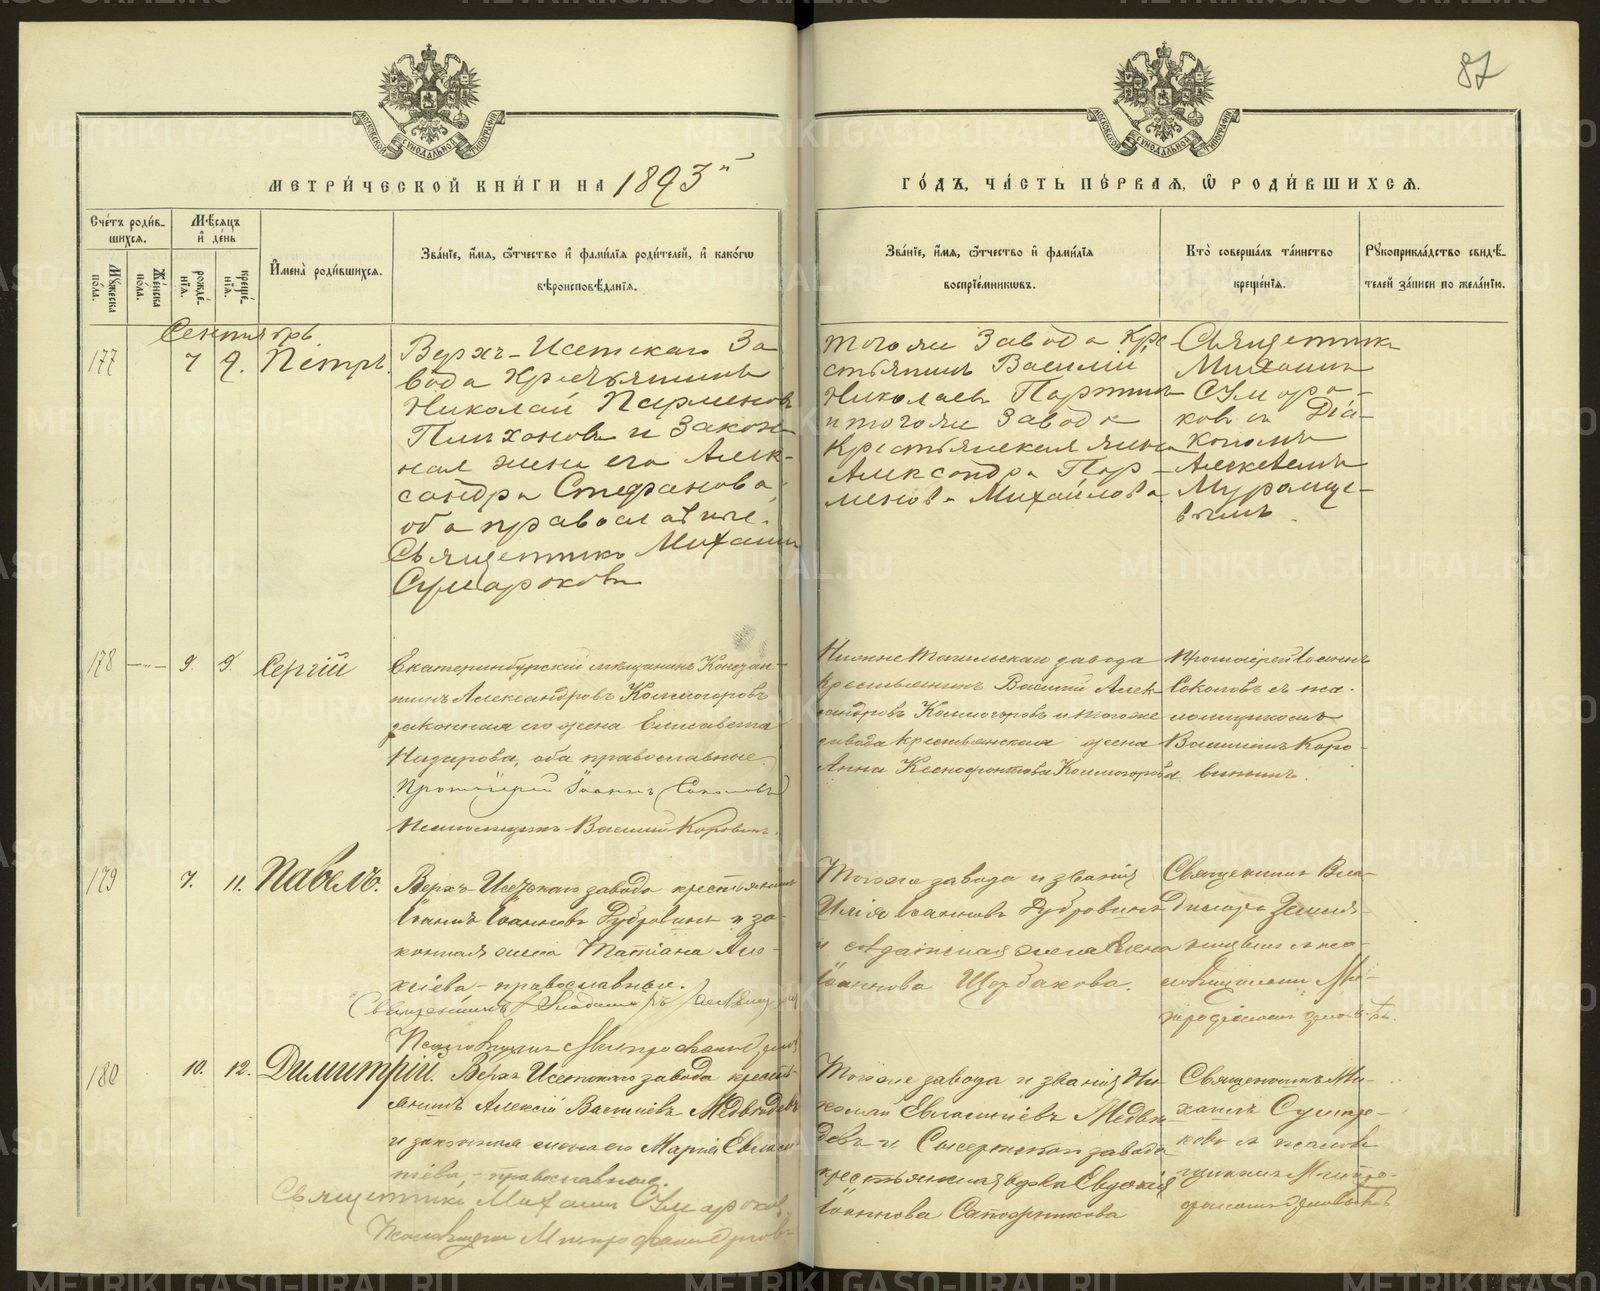 87
МОСКОВСКОЙ СѴНОДАЛЬНОЙ ТИПОГРАФІИ
МОСКОВСКОЙ СѴНОДАЛЬНОЙ ТИПОГРАФІИ
МЕТРИ́ЧЕСКОЙ КНИ́ГИ НА 1893й
ГО́ДЪ, ЧА́СТЬ ПЕ́РВАЯ, Ѡ҆ РОДИ́ВШИХСЯ.
Сче́тъ роди́в-
шихся.
Мѣ́сяцъ
и҆ де́нь
Му́жеска
по́ла.
Же́нска
по́ла.
рожде́-
нїя.
креще́-
нїя.
И҆мена̀ роди́вшихся.
Зва́нїе, и҆́мя, ѻ҆́тчество и҆ фами́лїя роди́телей, и҆ како́гѡ
вѣроисповѣ́данїя.
Зва́нїе, и҆́мя, ѻ҆́тчество и҆ фами́лїя
воспрїе́мникѡвъ.
Кто̀ соверша́лъ та́инство
креще́нїя.
Рукоприкла́дство свидѣ́-
телей за́писи по жела́нїю.
Сентябрь
177
7 9. Петръ.
Верхъ-Исетскаго За
вода Крестьянинъ
Николай Парменовъ
Плихановъ и закон
ная жена его Алек-
сандра Стефанова
оба православные.
Священникъ Михаилъ
Сумароковъ
того же Завода Кре
стьянинъ Василий
Николаевъ
и того же Завода
Крестьянская жена
Александра Пар-
менова Михайлова
Священникъ
Михаилъ
Сумаро-
ковъ съ Діа-
кономъ
Алексѣемъ
Муромце-
вымъ.
178 9. 9. Сергій
Екатеринбургскій мѣщанинъ Констан-
тинъ Александровъ Колмогоровъ
законная его жена Елисавета
Назарова, оба православные.
Протоіерей Іоаннъ Соколовъ
Псаломщикъ Василій Коровинъ.
Нижне Тагильскаго завода
крестьянинъ Василій Алек-
сандровъ Колмогоровъ и тогоже
завода крестьянская жена
Анна Ксенофонтова Колмогорова
Протоіерей Іоаннъ
Соколовъ съ пса-
ломщикомъ
Василіемъ Коро-
винымъ.
179 7. 11. Павелъ.
Верхъ-Исетскаго завода крестьянинъ
Іоаннъ Іоанновъ Дубровинъ и за-
конная жена Татіана Але-
ксіева - православные.
Священникъ Владиміръ
Псаломщикъ Митрофанъ
Тогоже завода и званія
Илія Іоанновъ Дубровинъ
и жена Елена
Іоаннова Щербакова.
Священникъ Вла-
диміръ
180 10. 12. Димитрій.
Верхъ Исетскаго завода кресть-
янинъ Алексій Василіевъ Медвѣдевъ
и законная жена его Марія Евламп-
іева, - православные.
Священникъ Михаилъ Сумароковъ
Псаломщикъ Митрофанъ
Тогоже завода и званія Ни-
колай Евлампіевъ Медвѣ-
девъ и Сысертскаго завода
крестьянская вдова Евдокія
Іоаннова Сапожникова
Священникъ Ми-
хаилъ Сумаро-
ковъ и псалом-
щикъ Митро-
METRIKI.GASO-URAL.RU